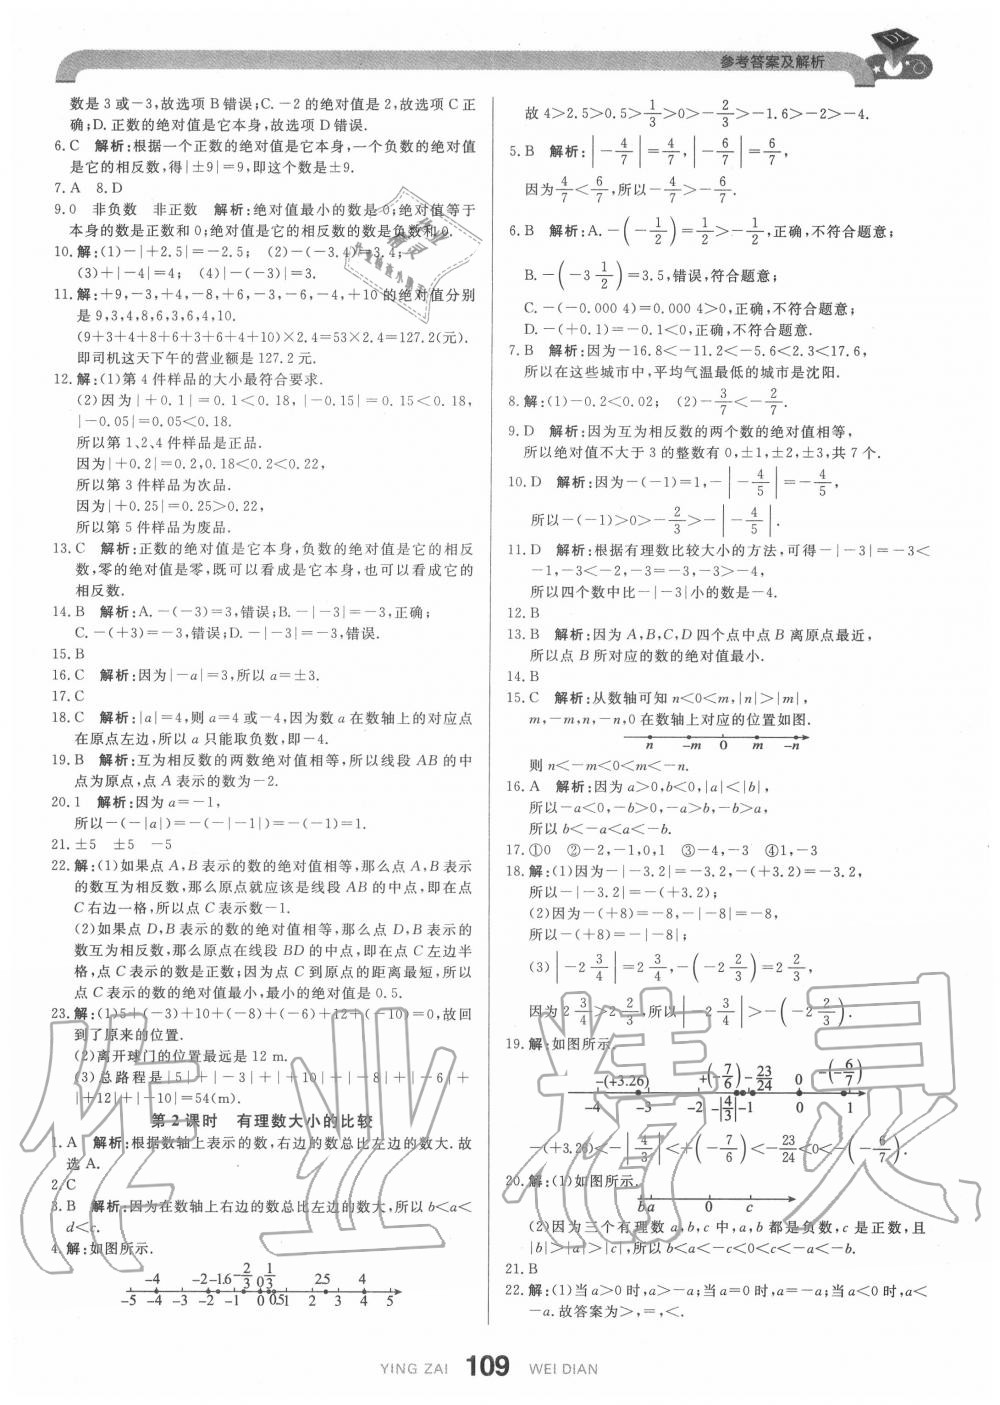 参考答案及解析
数是3或-3,故选项B错误;C.-2的绝对值是2,故选项C正
确;D.正数的绝对值是它本身,故选项D错误.
6.C 解析:根据一个正数的绝对值是它本身,一个负数的绝对值
是它的相反数,得|±9|=9,即这个数是±9.
7.A 8.D
9.0 非负数 非正数 解析:绝对值最小的数是0;绝对值等于
本身的数是正数和0;绝对值是它的相反数的数是负数和0.
10.解:(1)-|+2.5|=-2.5; (2)-(-3.4)=3.4;
(3)+|-4|=4; (4)|-(-3)|=3.
11.解:+9,-3,+4,-8,+6,-3,-6,-4,+10的绝对值分别
是9,3,4,8,6,3,6,4,10.
(9+3+4+8+6+3+6+4+10)×2.4=53×2.4=127.2(元).
即司机这天下午的营业额是127.2元.
12.解:(1)第4件样品的大小最符合要求.
(2)因为|+0.1|=0.1<0.18,|-0.15|=0.15<0.18,
|-0.05|=0.05<0.18.
所以第1、2、4件样品是正品.
因为|+0.2|=0.2,0.18<0.2<0.22,
所以第3件样品为次品.
因为|+0.25|=0.25>0.22,
所以第5件样品为废品.
13.C 解析:正数的绝对值是它本身,负数的绝对值是它的相反
数,零的绝对值是零,既可以看成是它本身,也可以看成是它的
相反数.
14.B 解析:A.-(-3)=3,错误;B.-|-3|=-3,正确;
C.-(+3)=-3,错误;D.-|-3|=-3,错误.
15.B
16.C 解析:因为|-a|=3,所以a=±3.
17.C
18.C 解析:|a|=4,则a=4或-4,因为数a在数轴上的对应点
在原点左边,所以a只能取负数,即-4.
19.B 解析:互为相反数的两数绝对值相等,所以线段AB的中
点为原点,点A表示的数为-2.
20.1 解析:因为a=-1,
所以-(-|a|)=-(-|-1|)=-(-1)=1.
21.±5 ±5 -5
22.解:(1)如果点A,B表示的数的绝对值相等,那么点A,B表示
的数互为相反数,那么原点就应该是线段AB的中点,即在点
C右边一格,所以点C表示数-1.
(2)如果点D,B表示的数的绝对值相等,那么点D,B表示的
数互为相反数,那么原点在线段BD的中点,即在点C左边半
格,点C表示的数是正数;因为点C到原点的距离最短,所以
点C表示的数的绝对值最小,最小的绝对值是0.5.
23.解:(1)5+(-3)+10+(-8)+(-6)+12+(-10)=0,故回
到了原来的位置.
(2)离开球门的位置最远是12 m.
(3)总路程是|5|+|-3|+|+10|+|-8|+|-6|+
|+12|+|-10|=54(m).
第2课时 有理数大小的比较
1.A 解析:根据数轴上表示的数,右边的数总比左边的数大.故
选A.
2.C
3.B 解析:因为在数轴上右边的数总比左边的数大,所以b<a<
d<c.
4.解:如图所示.
-4 -2 -1.6 -2/3 0 1/3 2.5 4
-5 -4 -3 -2 -1 0 0.5 1 2 3 4 5
故4>2.5>0.5>1/3>0>-2/3>-1.6>-2>-4.
5.B 解析:|-4/7|=4/7,|-6/7|=6/7,
因为4/7<6/7,所以-4/7>-6/7.
6.B 解析:A.-(-1/2)=1/2>-1/2,正确,不符合题意;
B.-(-3 1/2)=3.5,错误,符合题意;
C.-(-0.000 4)=0.000 4>0,正确,不符合题意;
D.-(+0.1)=-0.1<0,正确,不符合题意.
7.B 解析:因为-16.8<-11.2<-5.6<2.3<17.6,
所以在这些城市中,平均气温最低的城市是沈阳.
8.解:(1)-0.2<0.02; (2)-3/7<-2/7.
9.D 解析:因为互为相反数的两个数的绝对值相等,
所以绝对值不大于3的整数有0,±1,±2,±3,共7个.
10.D 解析:因为-(-1)=1,-|-4/5|=-4/5,
所以-(-1)>0>-2/3>-|-4/5|.
11.D 解析:根据有理数比较大小的方法,可得-|-3|=-3<
-1,-3<-2,-3=-3,-3>-4,
所以四个数中比-|-3|小的数是-4.
12.B
13.B 解析:因为A,B,C,D四个点中点B离原点最近,
所以点B所对应的数的绝对值最小.
14.B
15.C 解析:从数轴可知n<0<m,|n|>|m|,
m,-m,n,-n,0在数轴上对应的位置如图.
n -m 0 m -n
则n<-m<0<m<-n.
16.A 解析:因为a>0,b<0,|a|<|b|,
所以-a<0,-b>0,-a>b,-b>a,
所以b<-a<a<-b.
17.①0 ②-2,-1,0,1 ③-4,-3 ④1,-3
18.解:(1)因为-|-3.2|=-3.2,-(+3.2)=-3.2,
所以-|-3.2|=-(+3.2);
(2)因为-(+8)=-8,-|-8|=-8,
所以-(+8)=-|-8|;
(3)|-2 3/4|=2 3/4,-(-2 2/3)=2 2/3,
因为2 3/4>2 2/3,所以|-2 3/4|>-(-2 2/3).
19.解:如图所示.
-(+3.26) +(-7/6) -23/24 0 -(-6/7)
-4 -3 -2 -|4/3| -1 0 1
-(+3.26)<-|4/3|<+(-7/6)<-23/24<0<-(-6/7).
20.解:(1)如图所示.
b a 0 c
(2)因为三个有理数a,b,c中,a,b都是负数,c是正数,且
|b|>|a|>|c|,所以b<a<-c<0<c<-a<-b.
21.B
22.解:(1)当a>0时,a>-a;当a=0时,a=-a;当a<0时,a<
-a.故答案为>,=,<.
YING ZAI 109 WEI DIAN
作业精灵